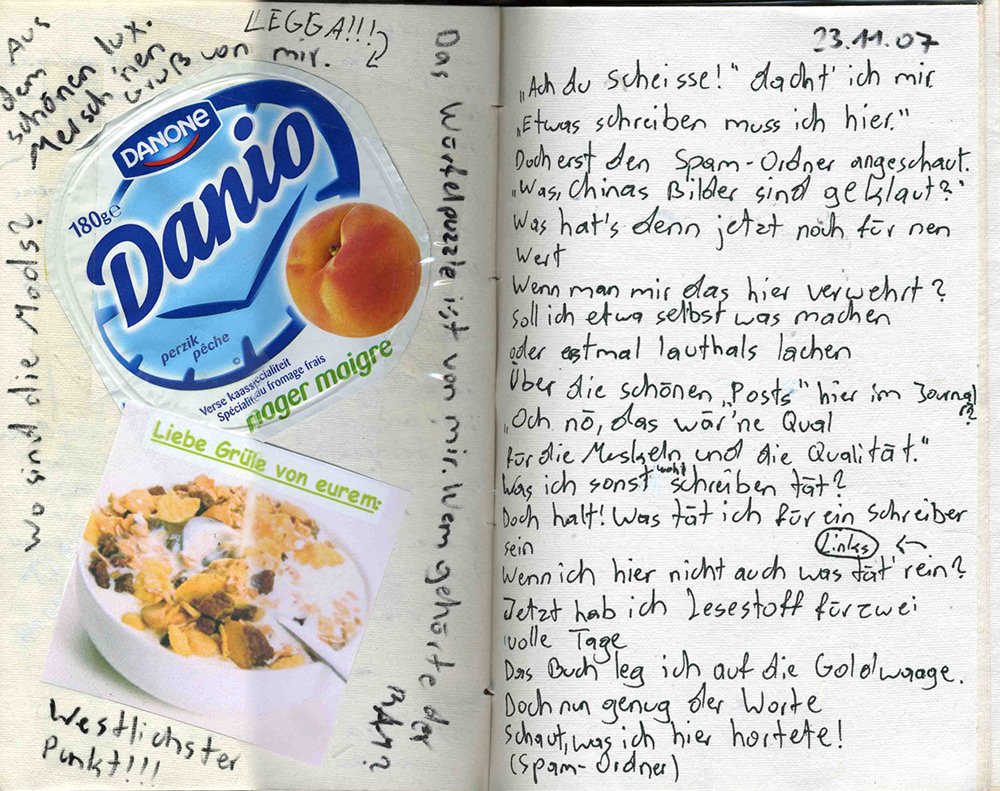 LEGGA!!!
Aus
dem
schönen lux.
Mersch 'nen
Gruß von mir.
wo sind die Mods?
DANONE
Danio
180g℮
perzik
pêche
Verse kaasspecialiteit
Spécialité au fromage frais
mager maigre
Liebe Grüße von eurem:
Westlichster
Punkt!!!
Das Würfelpuzzle ist von mir. Wem gehörte der
23.11.07
„Ach du scheisse!" dacht' ich mir
„Etwas schreiben muss ich hier."
Doch erst den Spam-Ordner angeschaut.
"Was, Chinas Bilder sind geklaut?"
Was hat's denn jetzt noch für nen
Wert
Wenn man mir das hier verwehrt?
Soll ich etwa selbst was machen
oder erstmal lauthals lachen
Über die schönen „Posts" hier im Journal
r?
„Och nö, das wär 'ne Qual
für die Muskeln und die Qualität."
Was ich sonst wohl schreiben tät?
Doch halt! Was tät ich für ein Schreiber
sein
Links ←
Wenn ich hier nicht auch was tät' rein?
Jetzt hab ich Lesestoff für zwei
volle Tage
Das Buch leg ich auf die Goldwaage.
Doch nun genug der Worte
schaut, was ich hier hortete!
(Spam-Ordner)